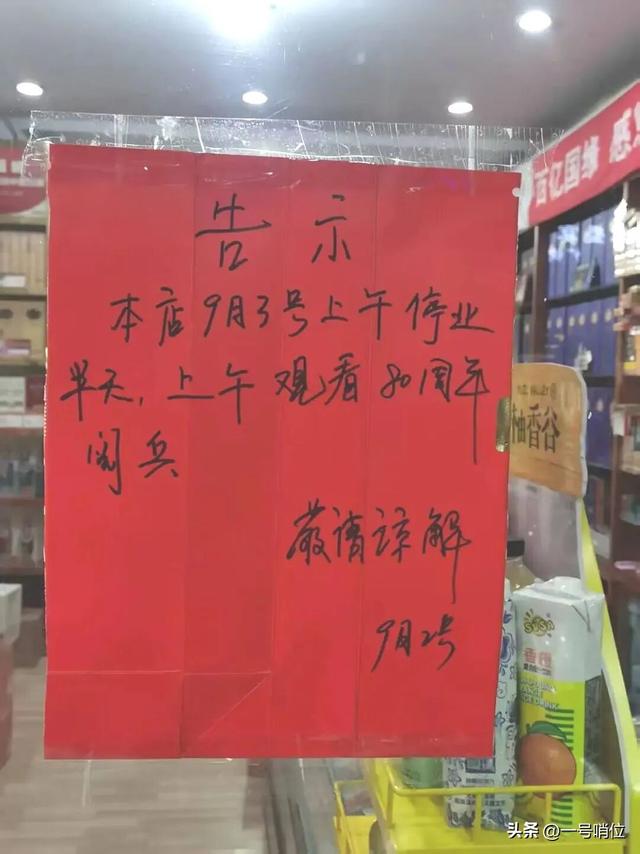 告示
本店9月3号上午停业
半天，上午观看80周年
阅兵
敬请谅解
9月2号
百亿国缘 感
柚香谷
头条 @一号哨位